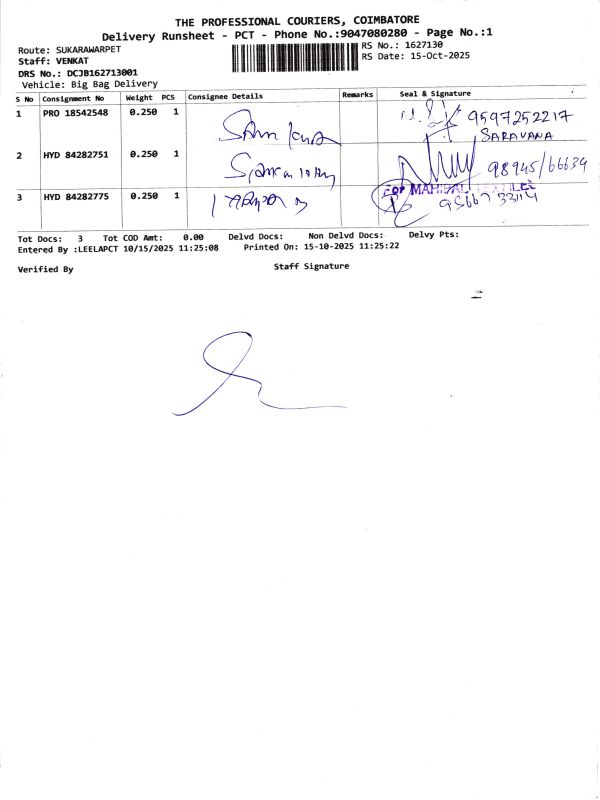 THE PROFESSIONAL COURIERS, COIMBATORE
Delivery Runsheet - PCT - Phone No.:9047080280 - Page No.:1
Route: SUKARAWARPET
RS No.: 1627130
Staff: VENKAT
RS Date: 15-Oct-2025
DRS No.: DCJB162713001
Vehicle: Big Bag Delivery
S No Consignment No Weight PCS Consignee Details Remarks Seal & Signature
1 PRO 18542548 0.250 1 9597252217
SARAVANA
2 HYD 84282751 0.250 1 98945/66634
3 HYD 84282775 0.250 1
Tot Docs: 3 Tot COD Amt: 0.00 Delvd Docs: Non Delvd Docs: Delvy Pts:
Entered By :LEELAPCT 10/15/2025 11:25:08 Printed On: 15-10-2025 11:25:22
Verified By Staff Signature